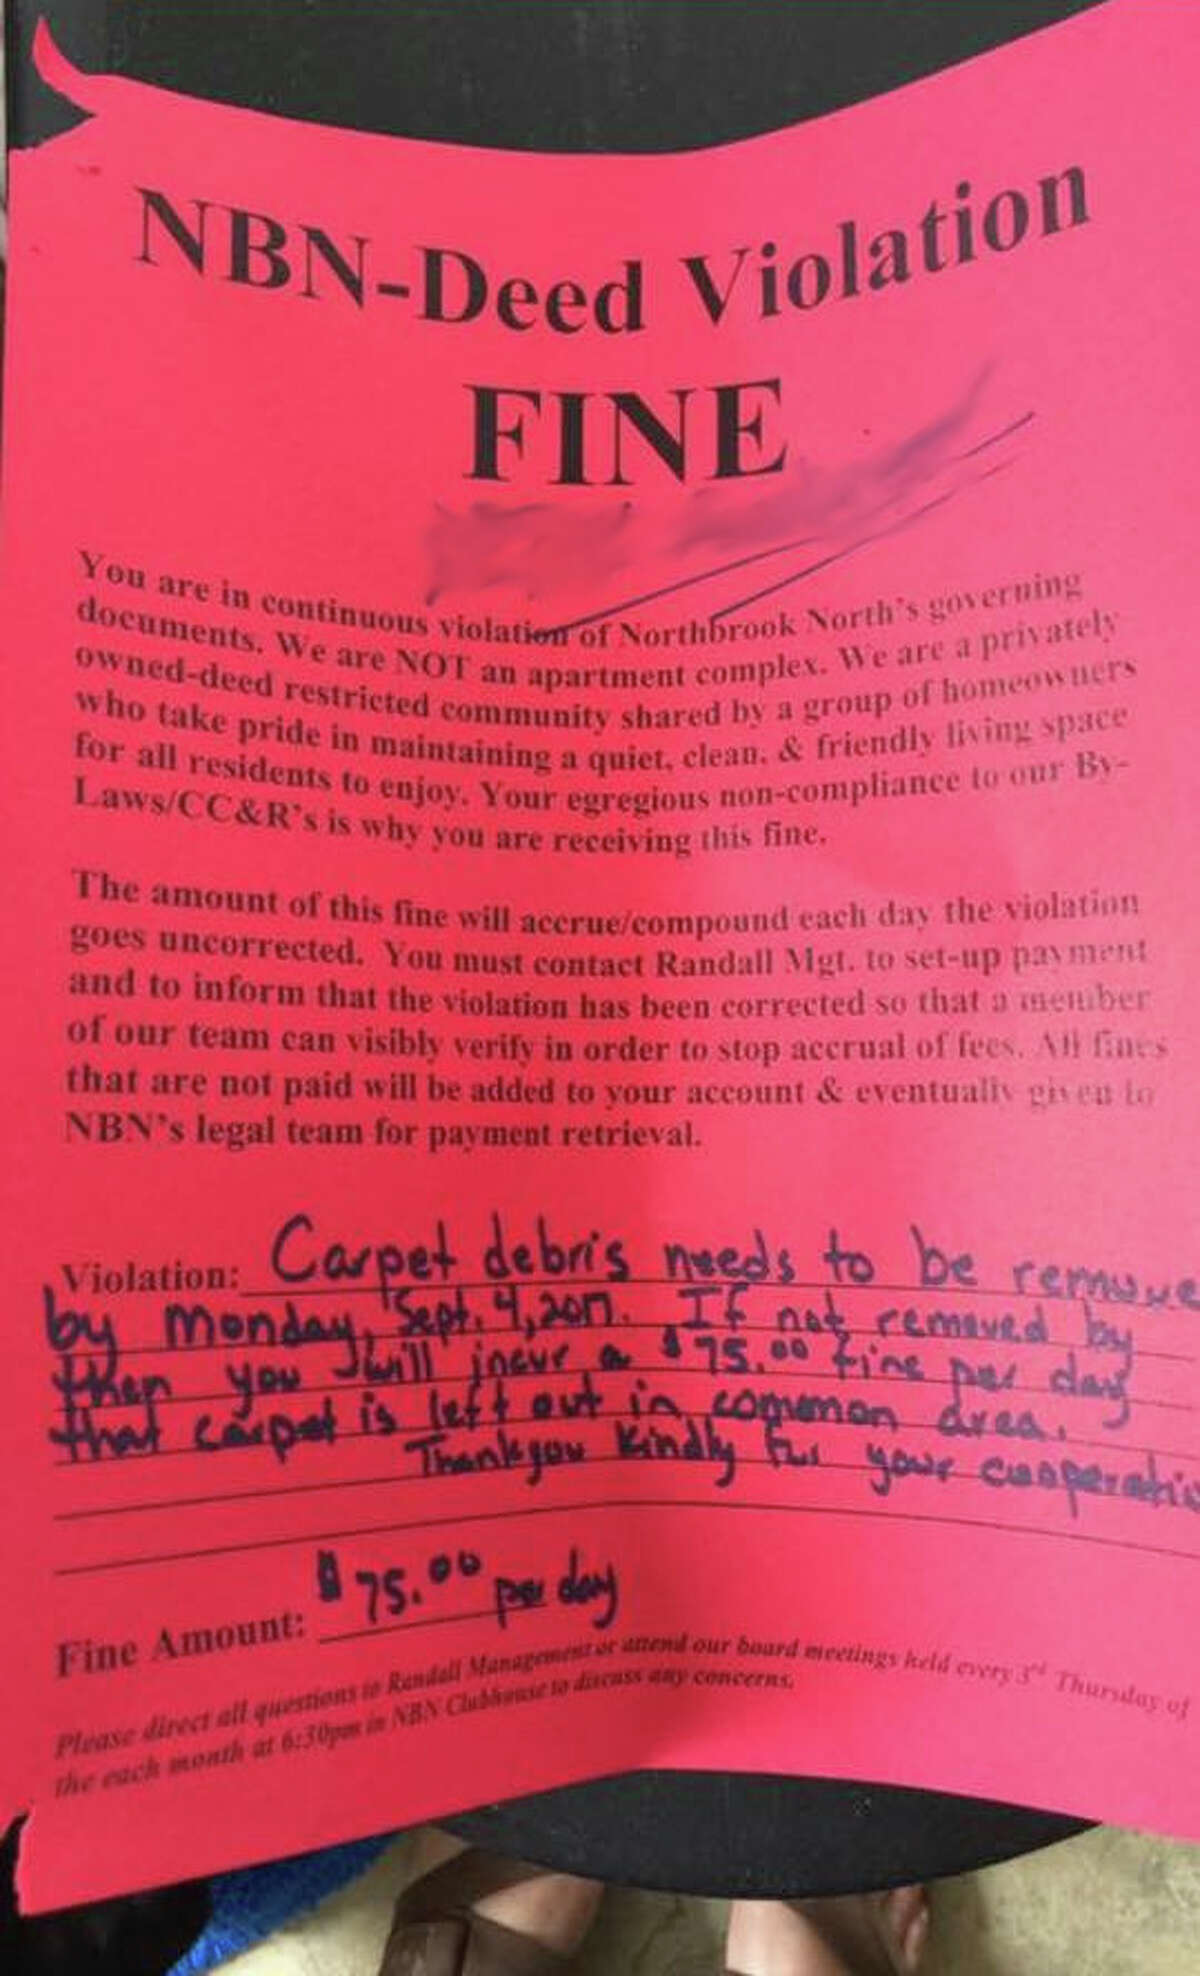 NBN-Deed Violation
FINE
You are in continuous violation of Northbrook North's governing
documents. We are NOT an apartment complex. We are a privately
owned-deed restricted community shared by a group of homeowners
who take pride in maintaining a quiet, clean, & friendly living space
for all residents to enjoy. Your egregious non-compliance to our By-
Laws/CC&R's is why you are receiving this fine.
The amount of this fine will accrue/compound each day the violation
goes uncorrected. You must contact Randall Mgt. to set-up payment
and to inform that the violation has been corrected so that a member
of our team can visibly verify in order to stop accrual of fees. All fines
that are not paid will be added to your account & eventually given to
NBN's legal team for payment retrieval.
Violation: Carpet debris needs to be remove
by Monday, Sept. 4, 2017. If not removed by
then you will incur a $75.00 fine per day
that carpet is left out in common area.
Thank you kindly for your cooperatio
Fine Amount: $75.00 per day
Please direct all questions to Randall Management or attend our board meetings held every 3rd Thursday of
the each month at 6:30pm in NBN Clubhouse to discuss any concerns.